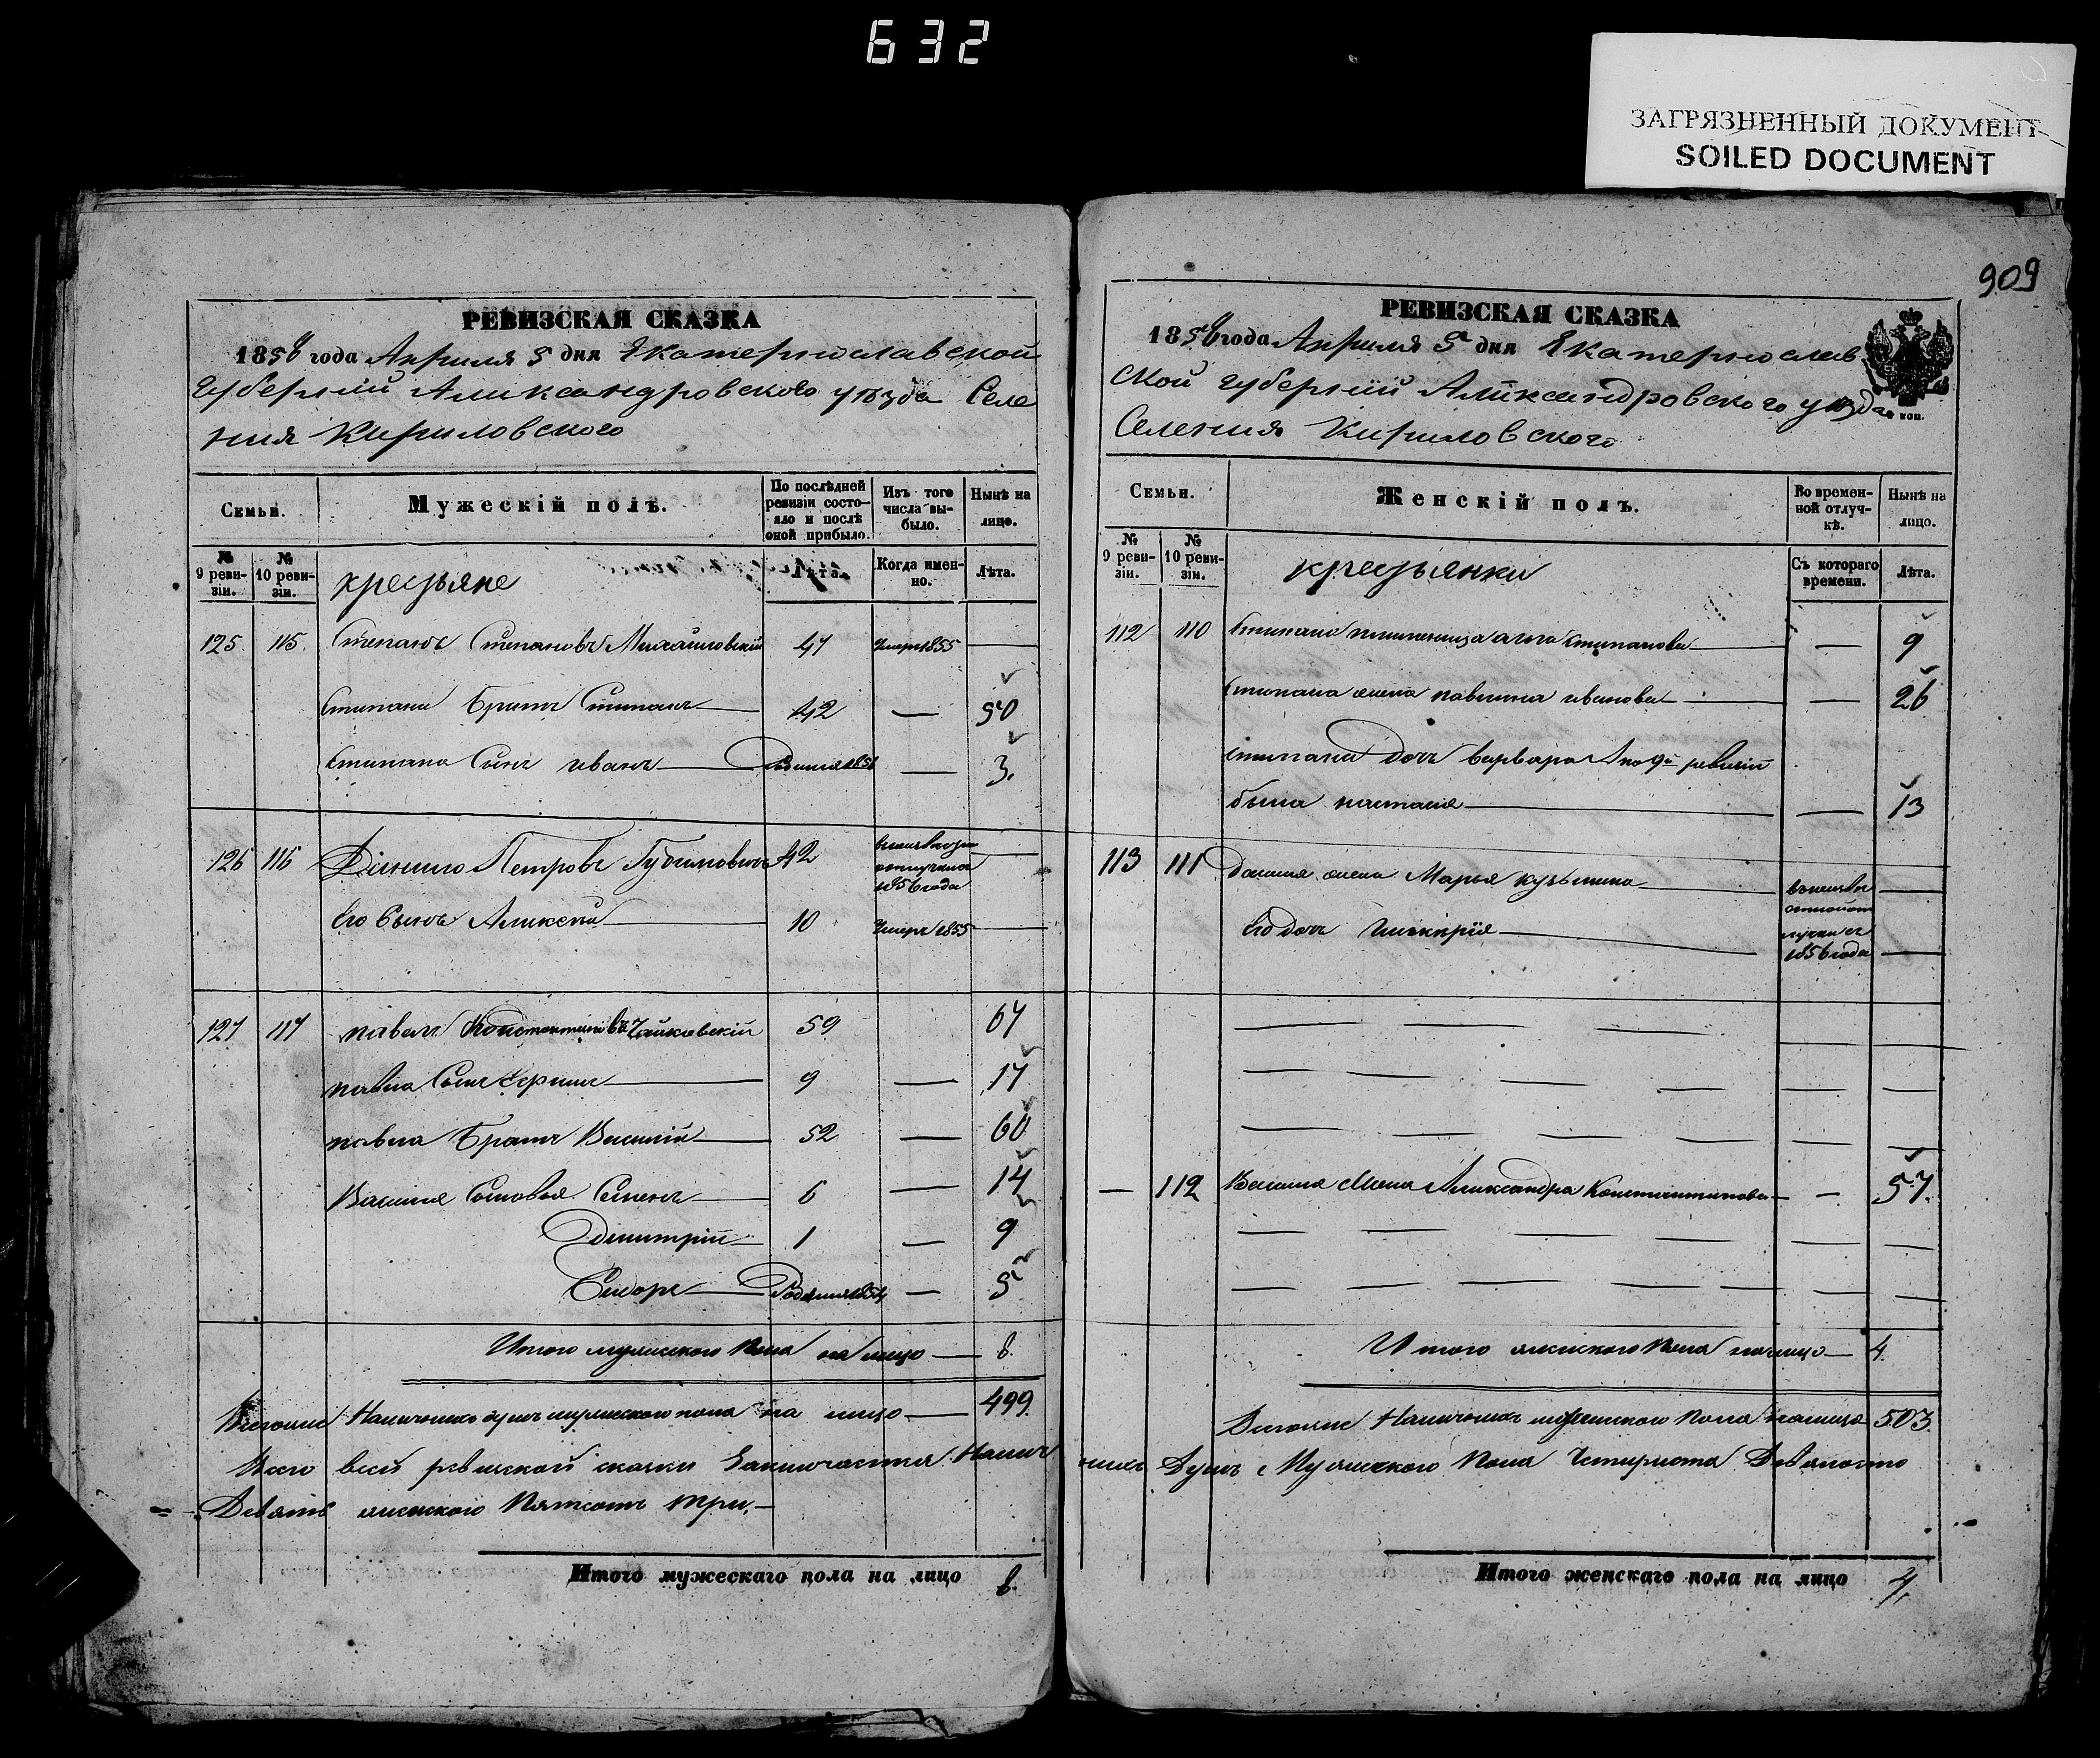 632
ЗАГРЯЗНЕННЫЙ ДОКУМЕНТ
SOILED DOCUMENT
РЕВИЗСКАЯ СКАЗКА
1858 года Апреля 5 дня Екатеринославской
Губернiи Александровского уѣзда Селе
ния Кириловского
Семьи.
Мужескiй полъ.
По послѣдней ревизiи состояло и послѣ оной прибыло.
Изъ того числа выбыло.
Нынѣ на лицо.
№ 9 ревизiи.
№ 10 ревизiи.
крестьяне
Лѣта.
Когда именно.
Лѣта.
125. 115. Степанъ Степановъ Михайловскiй 47 Умеръ 1855
Степана Братъ Степанъ 42 — 50
Степана Сынъ иванъ — 3.
126 116 Данило Петровъ 42 1856 года
Его Сынъ Алексей 10 Умеръ 1855
127 117 павелъ Константиновъ Чайковскiй 59 67
павла Сынъ 9 — 17
павла Братъ Василiй 52 — 60
Василия Сыновья Семенъ 6 — 14
Димитрiй 1 — 9
Сидоръ Родился 1854 — 5
Итого мужеского пола на лицо — 8.
Наличныхъ душъ мужеского пола на лицо — 499.
Всего въ сей ревизской сказки Заключается Налич
Девять женского Пятсотъ три.—
Итого мужескаго пола на лицо 8.
909
РЕВИЗСКАЯ СКАЗКА
1858 года Апреля 5 дня Екатеринослав
ской губернiй Александровского уѣзда
Селения Кириловского
коп.
Семьи.
Женскiй полъ.
Во временной отлучкѣ.
Нынѣ на лицо.
№ 9 ревизiи.
№ 10 ревизiи.
крестьянки
Съ котораго времени.
Лѣта.
112 110 Степана племенница Степанова — 9
Степана жена иванова — 26
степана дочь варвара а по 9й ревизiй
была настасия — 13
113 111 Данила жена Марья кузьмина
Его дочь 1856 года
— 112 Василия жена Александра Константинова — 57.
Итого женского пола на лицо — 4.
Наличныхъ женского пола на лицо 503.
ныхъ Душъ Мужеского пола Четыриста Девяносто
Итого женскаго пола на лицо 4.